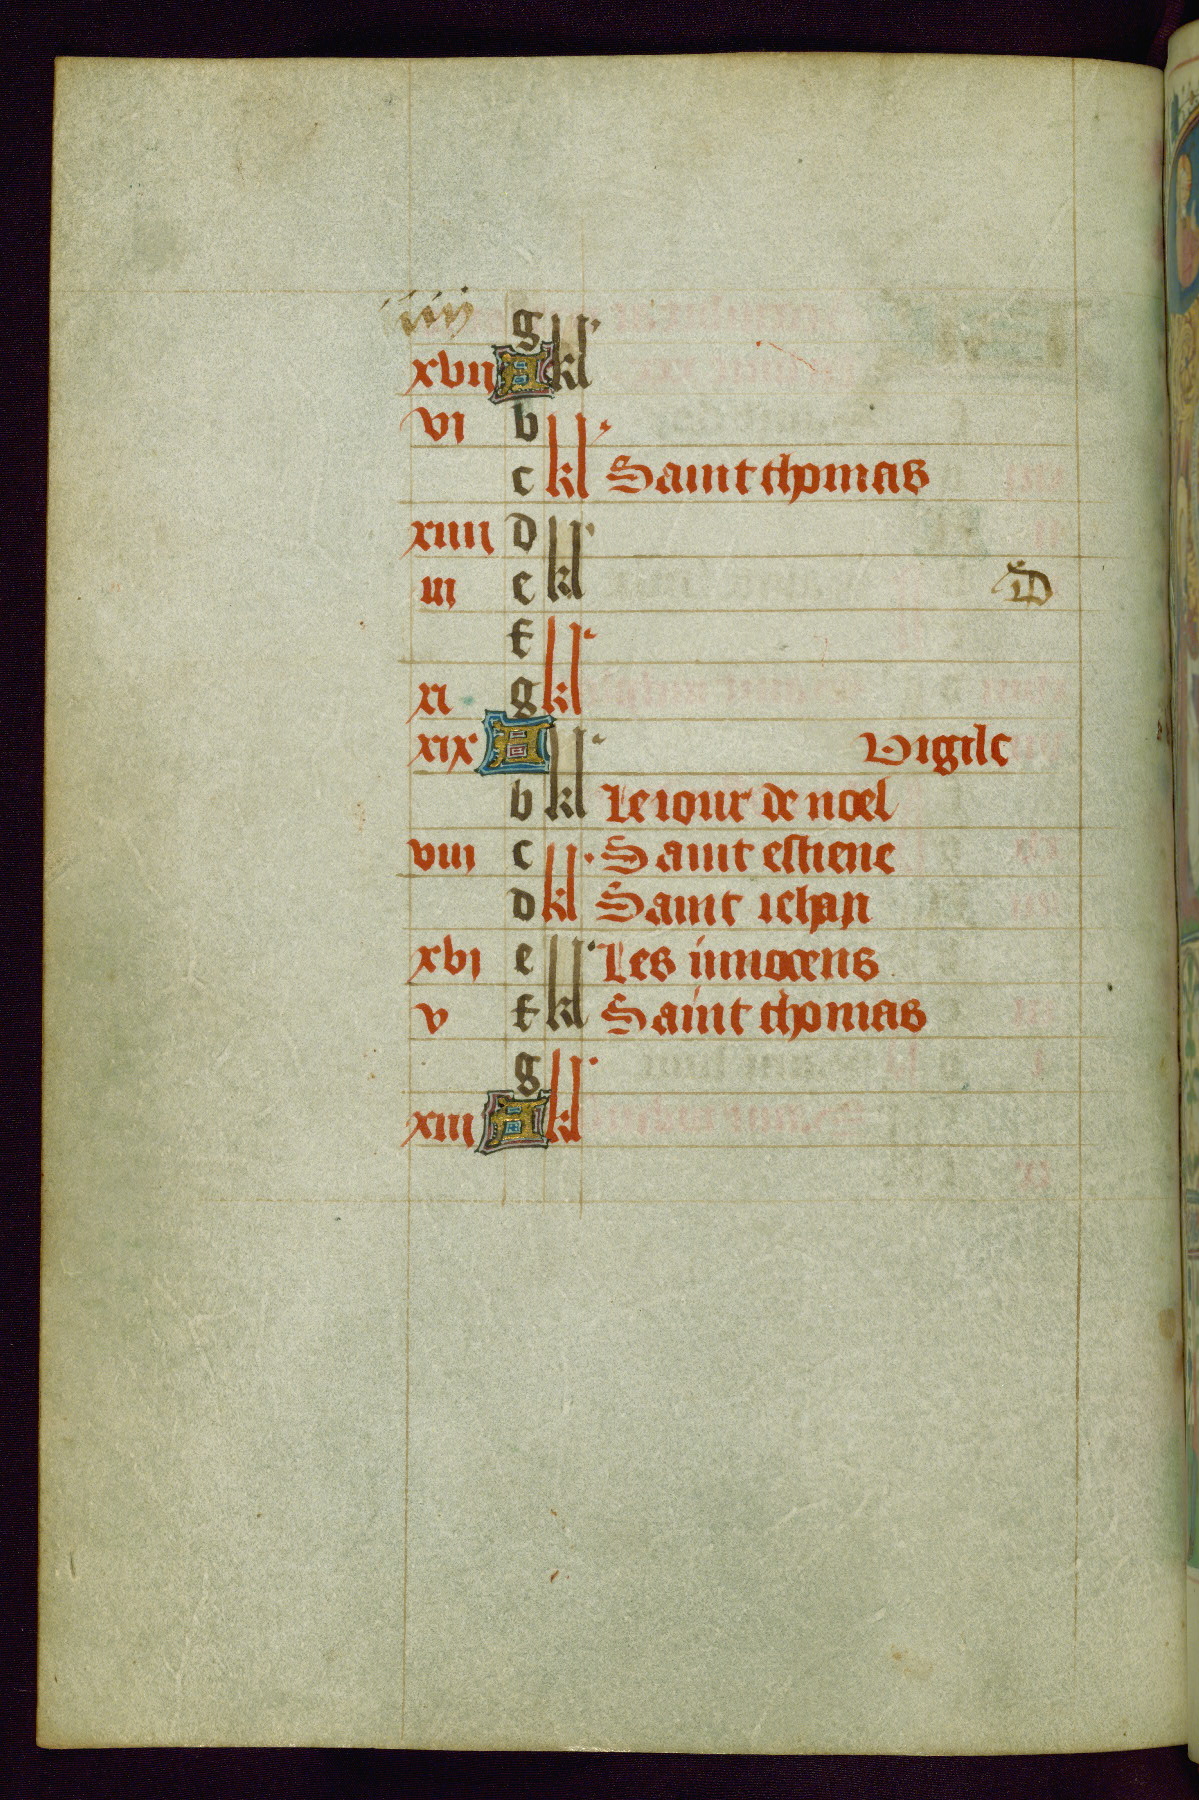 iiii g
xvii A kl
vi b
c kl Saint thomas
xiiii d
iii e kl D
f
xi g kl
xix A vigile
b kl Le iour de noel
viii c Saint estiene
d kl Saint iehan
xvi e Les innocens
v f kl Saint thomas
g
xiii A kl